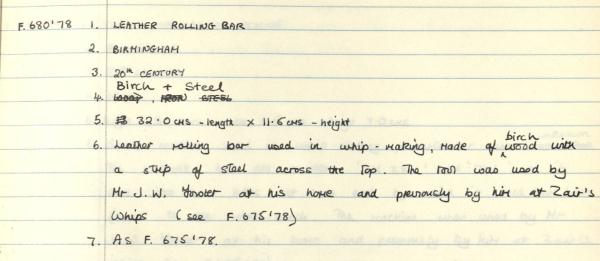 F.680'78 1. LEATHER ROLLING BAR
2. BIRMINGHAM
3. 20th CENTURY
Birch + Steel
4. WOOD, IRON STEEL
5. 32.0 cms - length x 11.6 cms - height
birch
6. Leather rolling bar used in whip-making, made of wood with
a strip of steel across the top. The tool was used by
Mr J.W. at his home and previously by him at Zair's
Whips (see F.675'78)
7. As F.675'78.